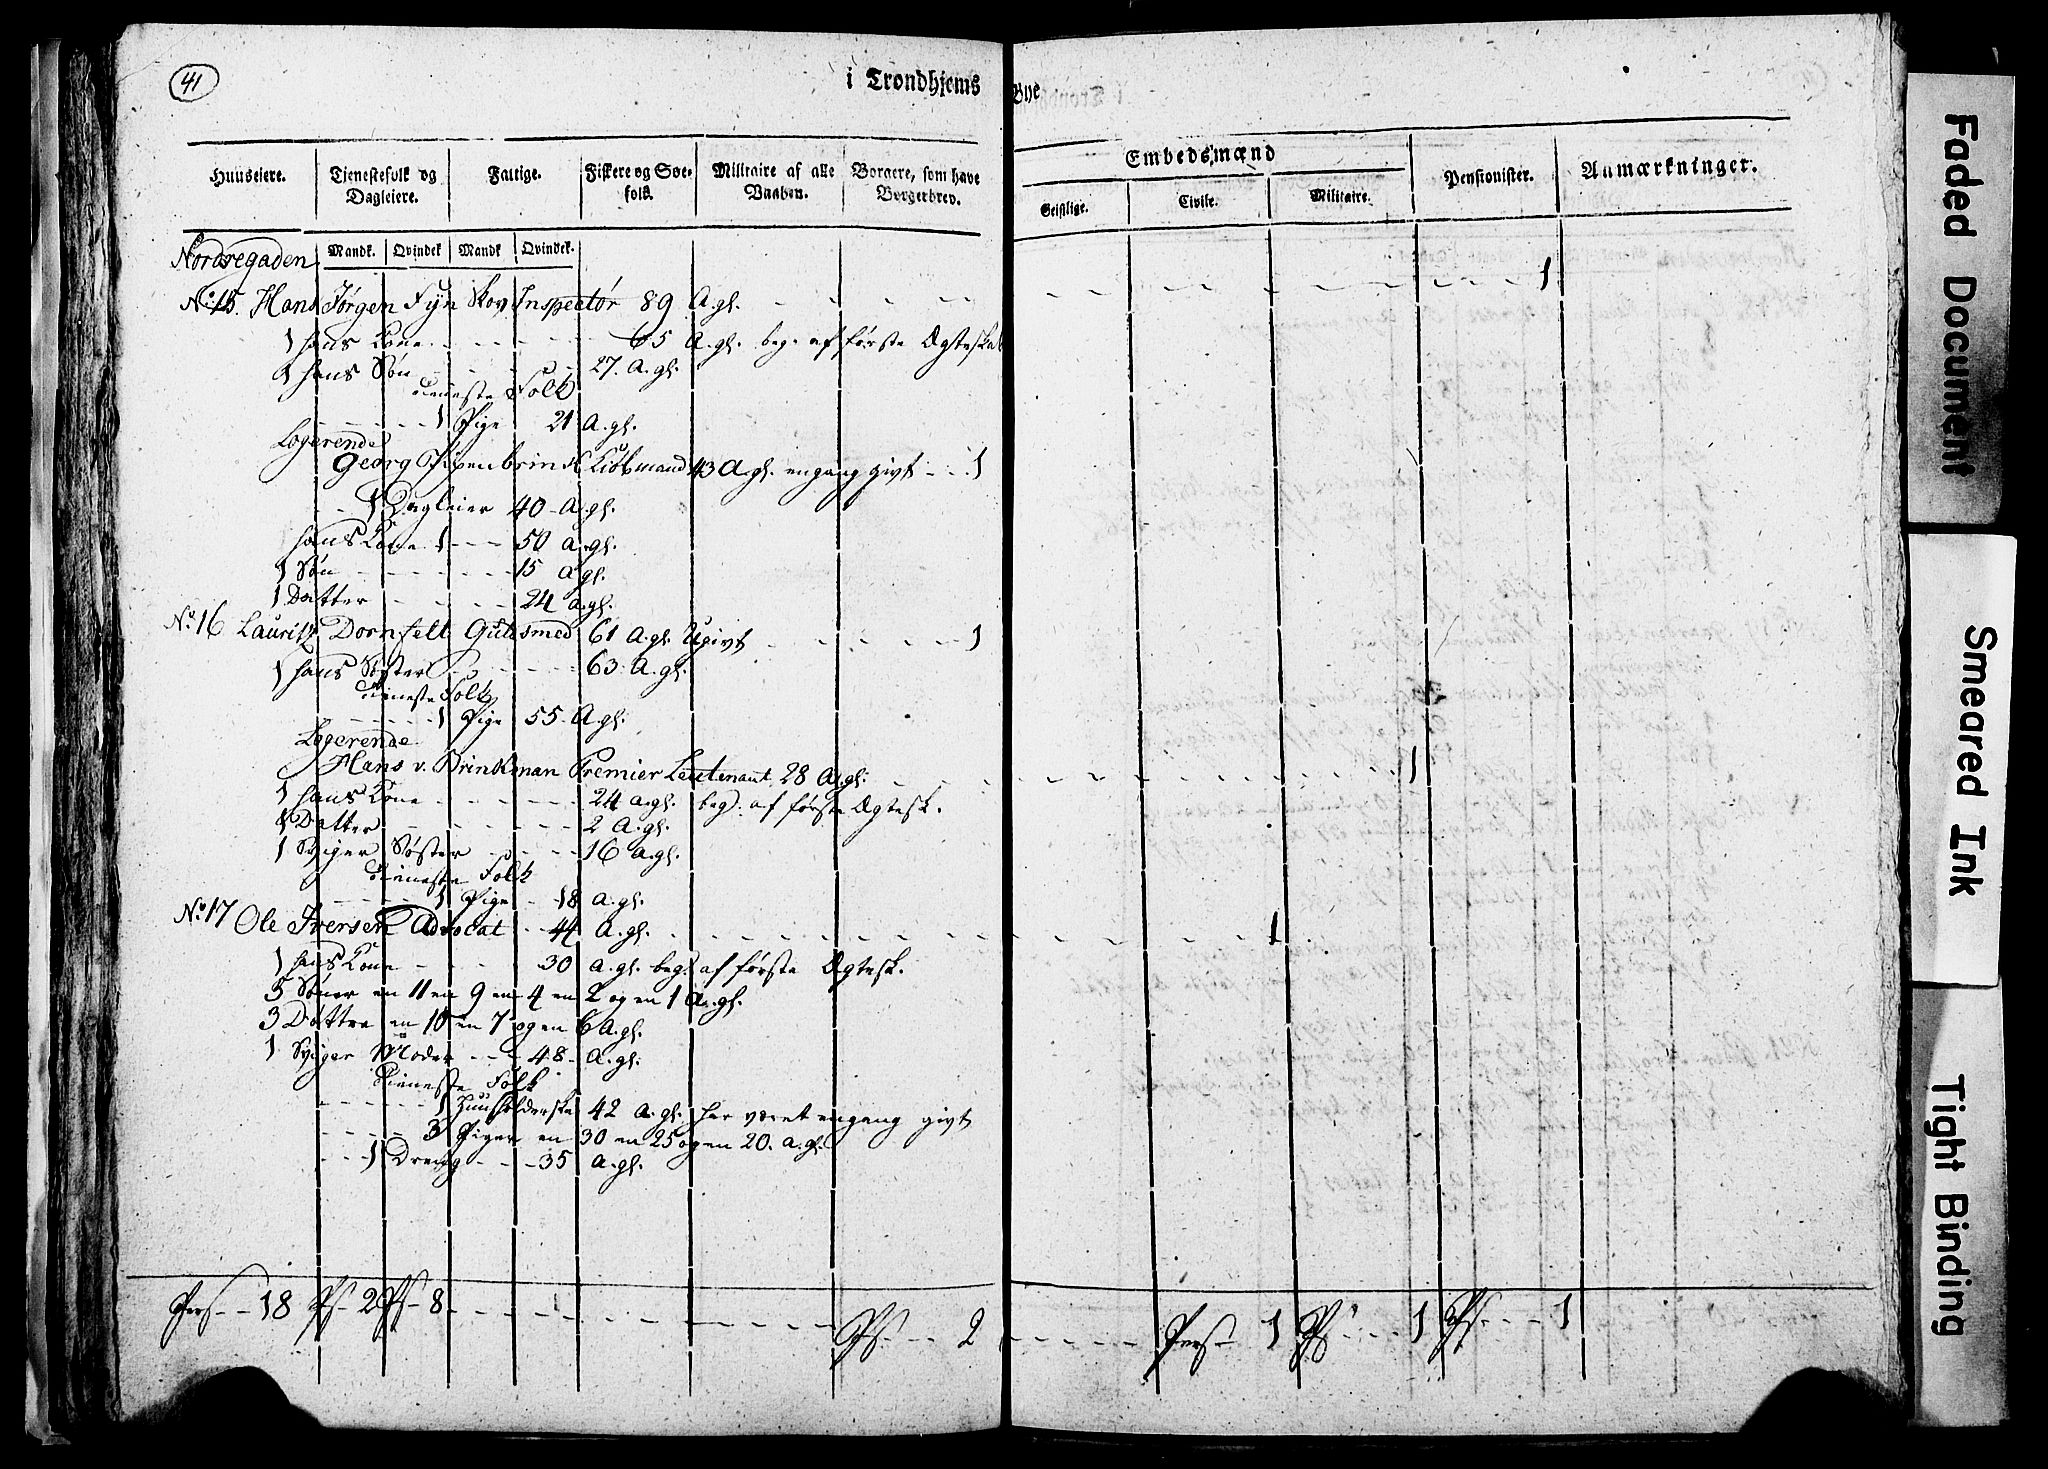 41
i Trondhjems Bye
Huuseiere. Tjenestefolk og Dagleiere. Fattige. Fiskere og Søe-folk. Militaire af alle Vaaben. Borgere, som have Borgerbrev. Embedsmænd Pensionister. Anmærkninger.
Geistlige. Civile. Militaire.
Mandk. Qvindek Mandk Qvindek.
Nordregaden
No. 15. Hans Jørgen Fyn Skov Inspectør 89 A.gl. 1
1 hans Kone 65 A.gl. beg. af første Ægteskab
1 hans Søn 27. A.gl.
Tieneste Folk
1 Pige 21 A.gl.
Logerende
Georg Pipenbrink Kiøbmand 43 A.gl. engang givt 1
1 Dagleier 40 A.gl.
hans Kone 1 50 A.gl.
1 Søn 15 A.gl.
1 Datter 24 A.gl.
No. 16 Lauritz Dornfelt Gulsmed 61 A.gl. Ugivt 1
1 hans Søster 63. A.gl.
Tieneste Folk
1 Pige 55 A.gl.
Logerende
Hans v. Brinkman Premier Leutenant 28 A.gl. 1
1 hans Kone 24 A.gl. beg. af første Ægtesk.
1 Datter 2 A.gl.
1 Sviger Søster 16 A.gl.
Tieneste Folk
1 Pige 18 A.gl.
No. 17 Ole Iversen Advocat 44 A.gl. 1
1 hans Kone 30 A.gl. beg. af første Ægtesk.
5 Sønner en 11 en 9 en 4 en 2 og en 1 A.gl.
3 Døttre en 10 en 7 og en 6 A.gl.
1 Sviger Moder 48 A.gl.
Tieneste Folk
1 Huusholderske 42 A.gl. har været engang givt
3 Piger en 30 en 25 og en 20. A.gl.
1 Dreng 35 A.gl.
Pers 18 Ps 2 Ps 8 Ps 2 Pers 1 Ps 1 Ps 1
Faded Document
Smeared Ink
Tight Binding